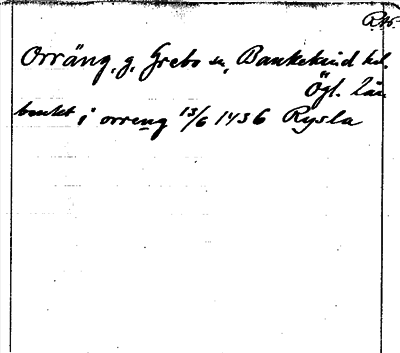 Orräng, g. Grebo sn, Bankekind hd.
Ögl. län
i orreng 13/6 1436 Rysla